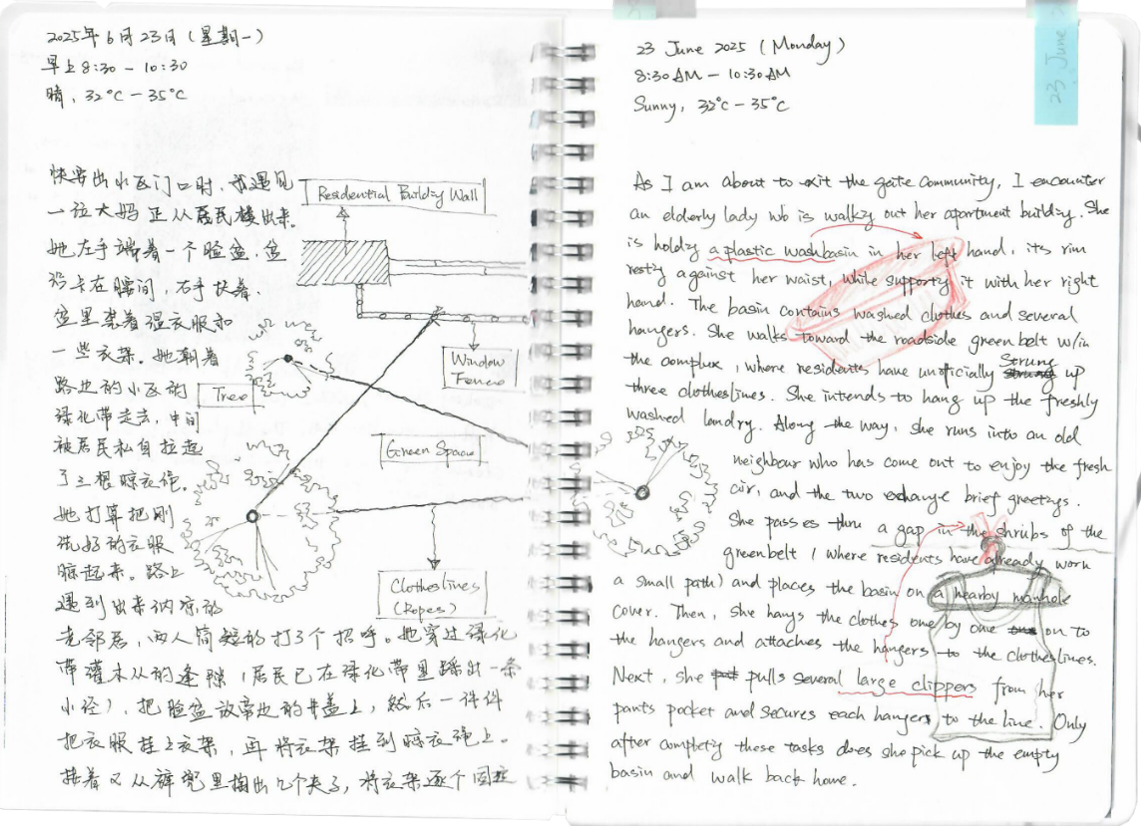 2025年6月23日(星期一)
早上8:30 - 10:30
晴, 32°C - 35°C
快要出小区门口时, 我遇见
一位大妈正从居民楼出来。
她左手端着一个脸盆, 盆
沿卡在腰间, 右手扶着,
盆里装着湿衣服和
一些衣架。她朝着
路边的小区的
绿化带走去, 中间
被居民私自拉起
了三根晾衣绳。
她打算把刚
洗好的衣服
晾起来。路上
遇到出来纳凉的
老邻居, 两人简短的打了个招呼。她穿过绿化
带灌木丛的缝隙(居民已在绿化带里踩出一条
小径), 把脸盆放旁边的井盖上, 然后一件件
把衣服挂上衣架, 再将衣架挂到晾衣绳上。
接着又从裤兜里掏出几个夹子, 将衣架逐个固定
Residential Building Wall
Window
Fence
Tree
Green Space
Clotheslines
(Ropes)
23 June 2025 (Monday)
8:30 AM - 10:30 AM
Sunny, 32°C - 35°C
23 June 2
As I am about to exit the gate community, I encounter
an elderly lady who is walking out her apartment building. She
is holding a plastic washbasin in her left hand, its rim
resting against her waist, while supporting it with her right
hand. The basin contains washed clothes and several
hangers. She walks toward the roadside greenbelt w/in
the complex, where residents have unofficially strung up
three clotheslines. She intends to hang up the freshly
washed landry. Along the way, she runs into an old
neighbour who has come out to enjoy the fresh
air, and the two exchange brief greetings.
She passes thru a gap in the shrubs of the
greenbelt (where residents have already worn
a small path) and places the basin on a nearby manhole
cover. Then, she hangs the clothes one by one on to
the hangers and attaches the hangers to the clotheslines.
Next, she pulls several large clippers from her
pants pocket and secures each hangers to the line. Only
after completing these tasks does she pick up the empty
basin and walk back home.